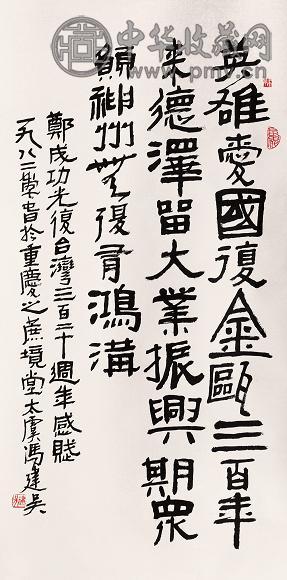 中华收藏网
www.pmv.cn
英雄愛國復金甌三百年
來德澤留大業振興期眾
願神州無復有鴻溝
鄭成功光復台灣三百二十週年感賦
一九八二年書於重慶之蔗境堂太虞馮建吳